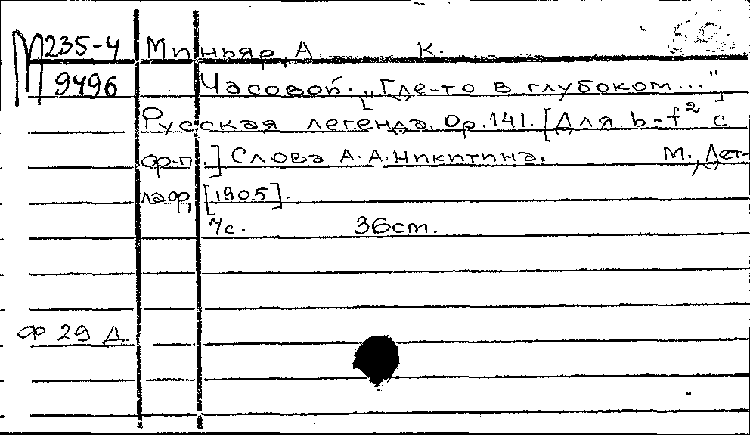 М235-4 Миньяр, А К.
9496 Часовой. ["Где-то в глубоком..."]
Русская легенда. Ор.141. [Для b-f² с
ф-п.] Слова А.А.Никитина. М., Дет-
лаф, [1905].
7с. 36ст.
ф 29 Д.